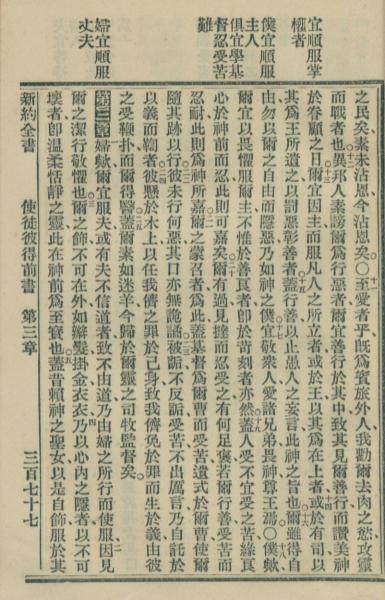 宜順服掌
權者
僕宜順服
主人
俱宜學基
督忍受苦
難
婦宜順服
丈夫
之民矣素未沾恩今沾恩矣〇至愛者乎既爲賓旅外人我勸爾去肉之慾攻靈
而戰者也異邦人素謗爾爲行惡者爾宜善行於其中致其見爾善行而讚美神
於眷顧之日爾宜因主而服凡人之所立者或於王以其爲在上者或於有司以
其爲王所遣之以罰惡彰善者蓋行善以止愚人之妄言此神之旨也爾雖得自
由勿以爾之自由而隱惡乃如神之僕宜敬衆人愛諸兄弟畏神尊王焉〇僕歟
爾宜以畏懼服爾主不惟於善良者卽於苛刻者亦然蓋人受不宜受之苦緣其
心於神前而忍此則可嘉矣爾有過見撻而忍受之有何足褒若爾行善受苦而
忍耐此則爲神所嘉爾之蒙召者爲此蓋基督爲爾曹而受苦遺式於爾曹使爾
隨其跡以行彼未行何惡其口亦無詭譎被詬不反詬受苦不出厲言乃自託於
以義而鞫者彼懸於木上以任我儕之罪於己身致我儕免於罪而生於義由彼
之受鞭扑而爾得醫蓋爾素如迷羊今歸於爾靈之司牧監督矣
第三章婦歟爾宜服夫或有夫不信道者致不由道乃由婦之所行而使服因見
爾之潔行敬懼也爾之飾不可在外如辮髮掛金衣衣乃以心內之隱者以不可
壞者卽溫柔恬靜之靈此在神前爲至寶也蓋昔賴神之聖女以是自飾服於其
新約全書 使徒彼得前書 第三章 三百七十七